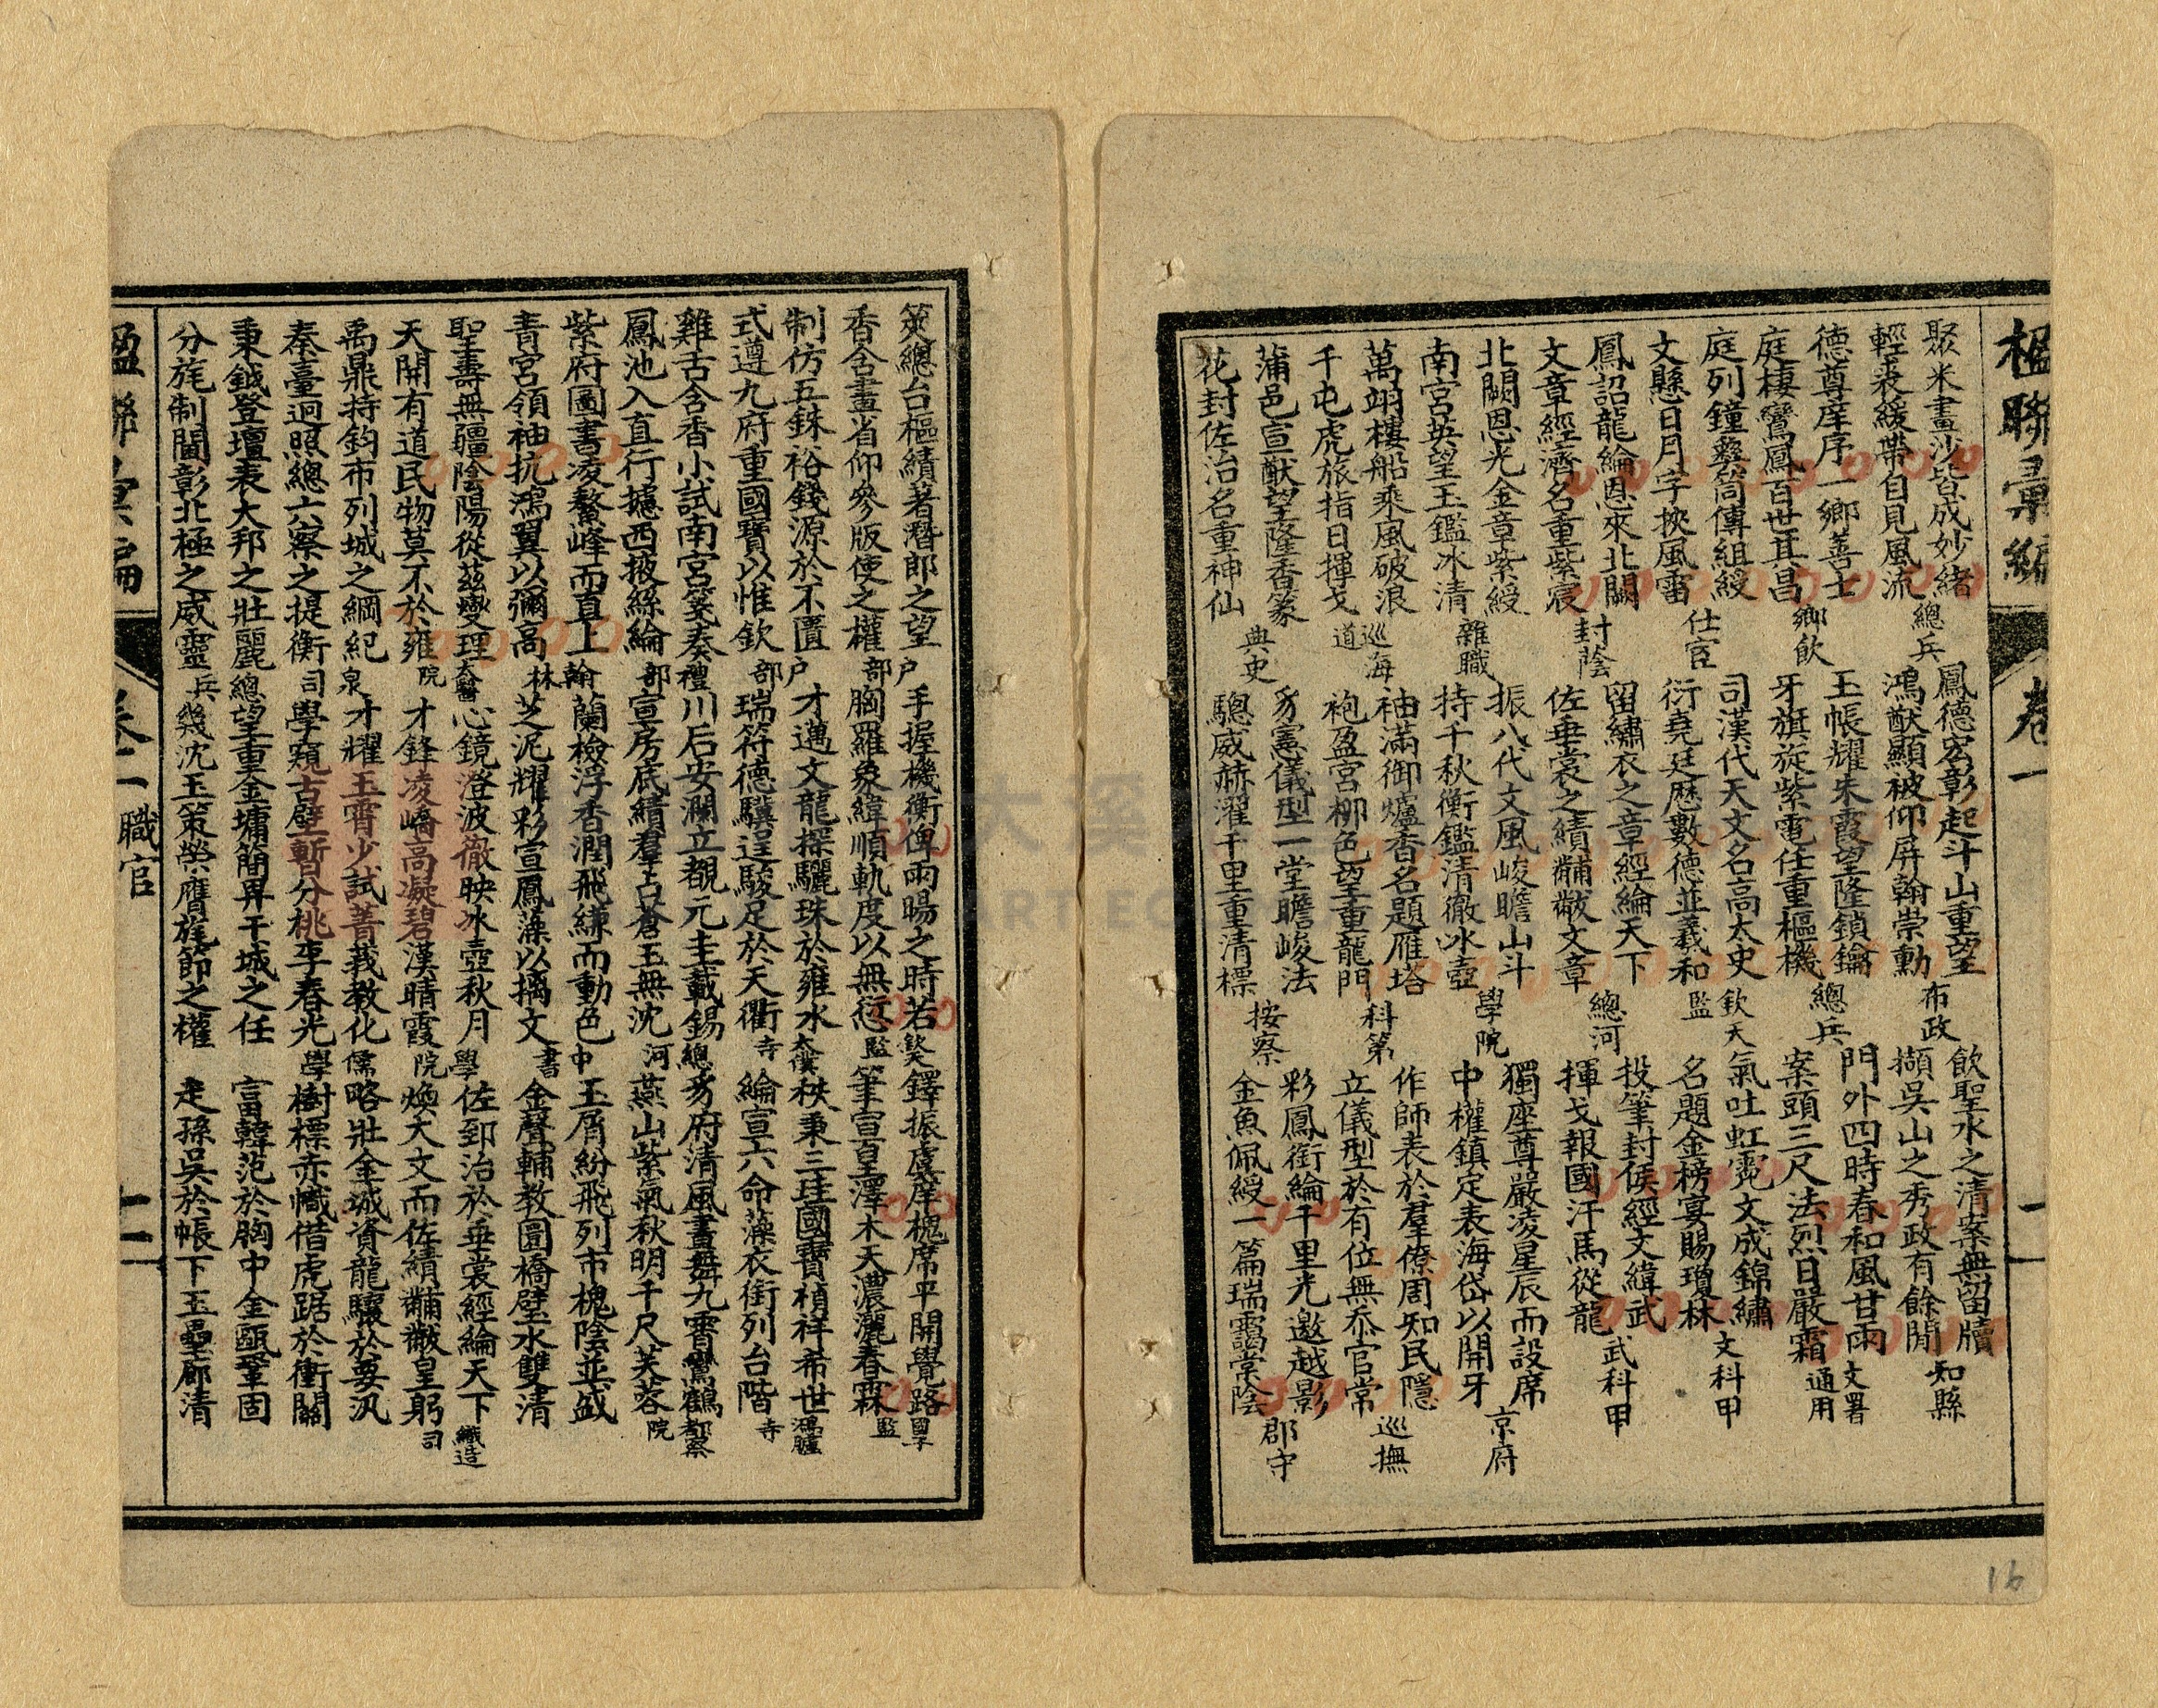 楹聯彙編 卷一
聚米畫沙皆成妙緒 鳳德宏彰起斗山重望 飲聖水之清案無留牘
輕裘緩帶自見風流 總兵 鴻猷顯被仰屏翰崇勳 布政 擷吳山之秀政有餘閒 知縣
德尊庠序一鄉善士 玉帳耀朱霞望隆鎖鑰 門外四時春和風甘雨
庭棲鸞鳳百世其昌 鄉飲 牙旗旋紫電任重樞機 總兵 案頭三尺法烈日嚴霜 文署通用
庭列鐘彝笥傳組綬 司漢代天文名高太史 氣吐虹霓文成錦繡
文懸日月字挾風雷 仕宦 衍堯廷歷數德並羲和 欽天監 名題金榜宴賜瓊林 文科甲
鳳詔龍綸恩來北闕 留繡衣之章經綸天下 投筆封侯經文緯武
文章經濟名重紫宸 封蔭 佐垂裳之績黼黻文章 總河 揮戈報國汗馬從龍 武科甲
北闕恩光金章紫綬 振八代文風峻瞻山斗 獨座尊嚴凌星辰而設席
南宮英望玉鑑冰清 雜職 持千秋衡鑑清徹冰壺 學院 中權鎮定表海岱以開牙 京府
萬翊樓船乘風破浪 袖滿御爐香名題雁塔 作師表於羣僚周知民隱
千屯虎旅指日揮戈 巡海道 袍盈宮柳色望重龍門 科第 立儀型於有位無忝官常 巡撫
蒲邑宣猷望隆香篆 豸憲儀型一堂瞻峻法 彩鳳銜綸千里光邀越影
花封佐治名重神仙 典史 驄威赫濯千里重清標 按察 金魚佩綬一篇瑞靄棠陰 郡守
筴總台樞績著潛郎之望 手握機衡俾雨暘之時若 鐸振虞庠槐席平開覺路
香含畫省仰參版使之權 户部 胸羅象緯順軌度以無愆 欽監 筆宣皇澤木天濃灑春霖 國子監
制仿五銖裕錢源於不匱 才邁文龍探驪珠於雍水 秩秉三珪國寶禎祥希世
式遵九府重國寶以惟欽 户部 瑞符德驥逞駿足於天衢 太僕寺 綸宣六命藻衣銜列台階 鴻臚寺
雞舌含香小試南宮箋奏 川后安瀾立覩元圭戴錫 豸府清風晝舞九霄鸞鶴
鳳池入直行攄西掖絲綸 禮部 宣房底績羣占蒼玉無沈 總河 燕山紫氣秋明千尺芙蓉 都察院
紫府圖書凌鰲峰而直上 蘭檢浮香潤飛縑而動色 玉屑紛飛列市槐陰並盛
青宮領袖抗鴻翼以彌高 翰林 芝泥耀彩宣鳳藻以摛文 中書 金聲輔教圜橋璧水雙清
聖壽無疆陰陽從茲燮理 心鏡澄波徹映冰壺秋月 佐郅治於垂裳經綸天下
天開有道民物莫不於雍 太醫院 才鋒凌嶠高凝碧漢晴霞 學院 煥大文而佐績黼黻皇躬 織造司
禹鼎持鈞布列城之綱紀 才耀玉霄少試菁莪教化 略壯金城資龍驤於要汛
秦臺迥照總六察之提衡 泉司 學窺古壁暫分桃李春光 儒學 樹標赤幟借虎踞於衝關
秉鉞登壇表大邦之壯麗 望重金墉簡畀干城之任 富韓范於胸中金甌鞏固
分旄制閫彰北極之威靈 總兵 幾沈玉策榮膺旄節之權 走孫吳於帳下玉壘廓清
楹聯彙編 卷一 職官 十一
16